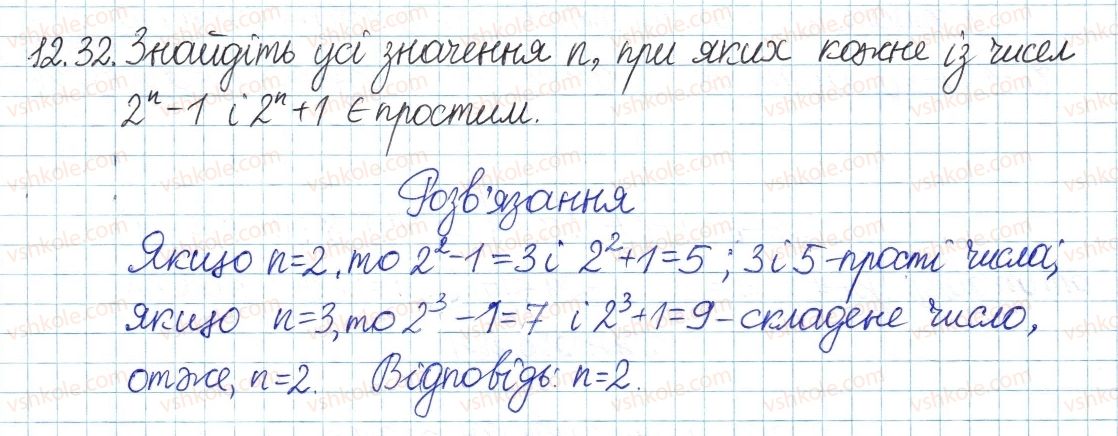 12.32. Знайдіть усі значення n, при яких кожне із чисел
2ⁿ-1 і 2ⁿ+1 є простим.
Розв'язання
Якщо n=2, то 2²-1=3 і 2²+1=5; 3 і 5 - прості числа;
якщо n=3, то 2³-1=7 і 2³+1=9 - складене число,
отже, n=2. Відповідь: n=2.